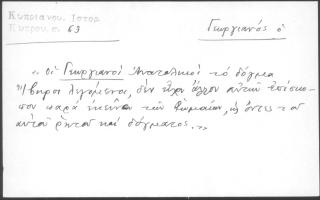 Κυπριανού. Ιστορ.
Κύπρου. σ. 63
Γεωργιανός ὁ
"οἱ Γεωργιανοὶ Ἀνατολικοὶ τὸ δόγμα
Ἴβηροι λεγόμενοι, δὲν εἶχον ἄλλον αὐτῶν ἐπίσκο-
πον παρὰ ἐκεῖνον τῶν Ῥωμαίων, ὡς ὄντες τοῦ
αὐτοῦ ῥητοῦ καὶ δόγματος."